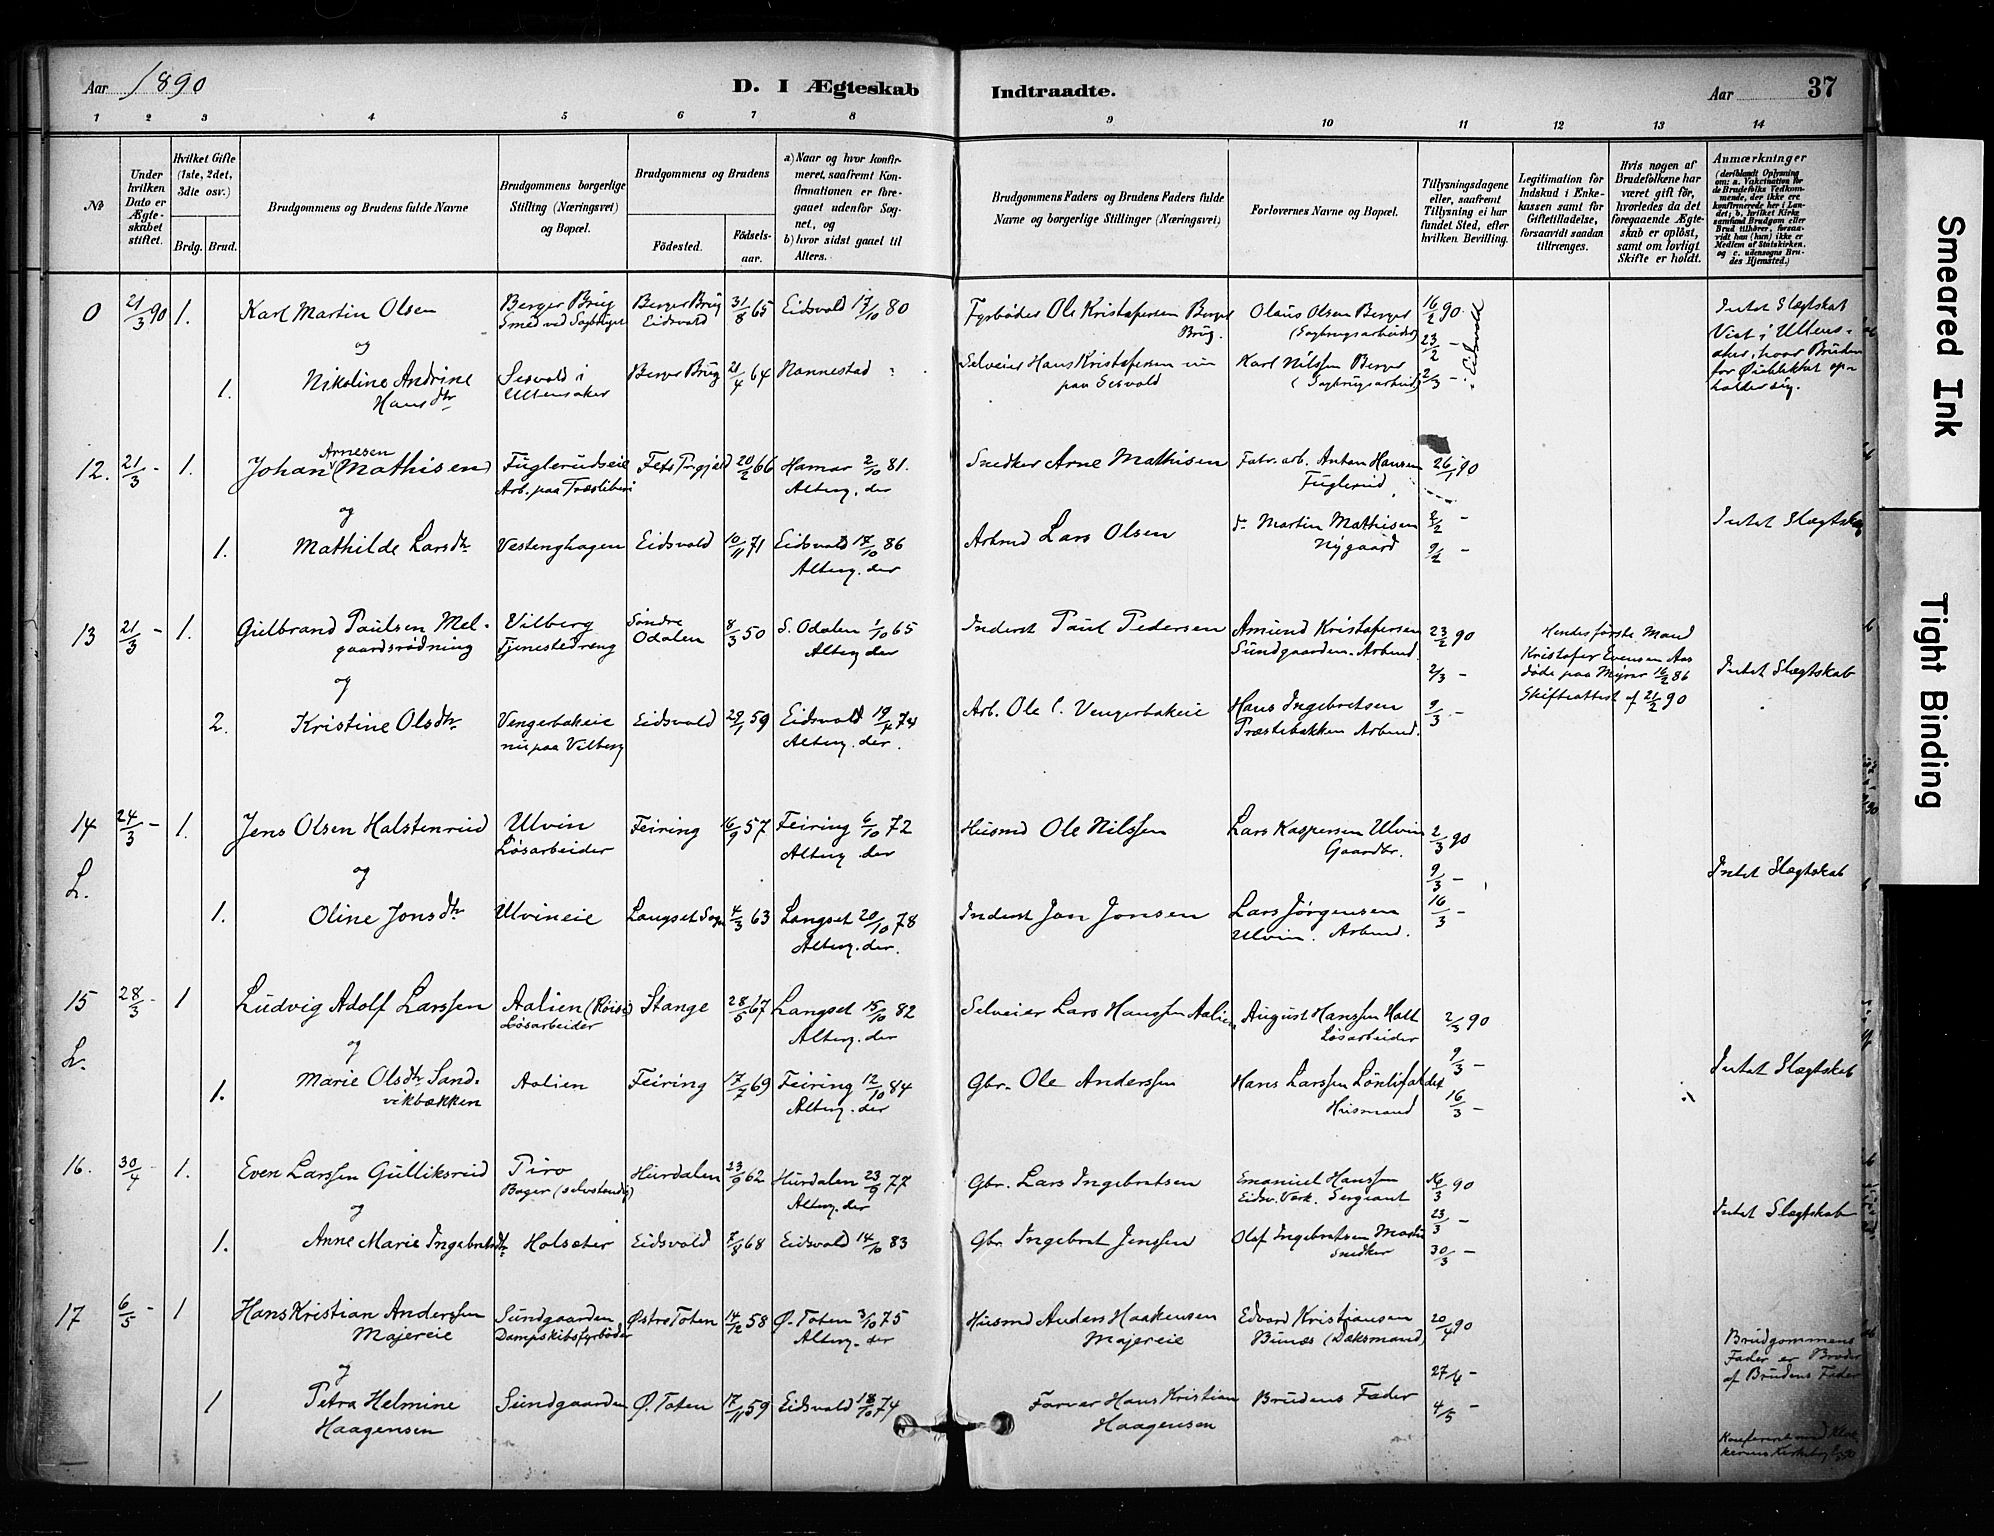 Aar 1890
D. I Ægteskab Indtraadte.
Aar 37
1 2 3 4 5 6 7 8 9 10 11 12 13 14
No
Under hvilken Dato er Ægteskabet stiftet.
Hvilket Gifte (1ste, 2det, 3die osv.)
Brdg. Brud.
Brudgommens og Brudens fulde Navne
Brudgommens borgerlige Stilling (Næringsvei) og Bopæl.
Brudgommens og Brudens
Födested. Födselsaar.
a) Naar og hvor konfirmeret, saafremt Konfirmationen er foregaaet udenfor Sognet, og
b) hvor sidst gaaet til Alters.
Brudgommens Faders og Brudens Faders fulde Navne og borgerlige Stillinger (Næringsvei)
Forlovernes Navne og Bopæl.
Tillysningsdagene eller, saafremt Tillysning ei har fundet Sted, efter hvilken Bevilling.
Legitimation for Indskud i Enkekassen samt for Giftetilladelse, forsaavidt saadan tiltrænges.
Hvis nogen af Brudefolkene har været gift för, hvorledes da det foregaaende Ægteskab er oplöst, samt om lovligt Skifte er holdt.
Anmærkninger (deriblandt Oplysning om: a. Vakcination for de Brudefolks Vedkommende, der ikke ere konfirmerede her i Landet; b. hvilket Kirkesamfund Brudgom eller Brud tilhörer, forsaavidt han (hun) ikke er Medlem af Statskirken, og c. udensogns Brudes Hjemsted.)
0 21/3 90 1. Karl Martin Olsen Berger Brug Berger Brug 31/8 65 Eidsvold 17/10 80 Fyrböder Ole Kristofersen Berger Olaus Olsen Berger 16/2 90 Intet Slægtskab
Smed ved Eidsvold Brug. (Sagbrugsarbeider) 23/2 - Eidsvold
og Viet i Ullens-
1. Nikoline Andrine Sesvold i Berger Brug 21/4 64 Nannestad Selveier Hans Kristofersen Karl Nilssen Berger 2/3 - aker, hvor Bruden
Hansdtr Ullensaker paa Sesvold (Sagbrugsarbeid) for Øieblikket op-
holder sig.
12. 21/3 - 1. Johan Arnesen (Mathisen) Fuglerudeie 20/2 66 Hamar 2/10 81. Snedker Arne Mathisen Fabr. arb. Anton Hansen 26/1 90
Arb. paa Træsliberi Alterg. der Fuglerud
og
1. Mathilde Larsdtr Vestenghagen Eidsvold 10/11 71 Eidsvold 17/10 86 Arbmd Lars Olsen do Martin Mathisen 2/2 - Intet Slægtskab
Alterg. der Nygaard 9/2 -
13 21/3 - 1. Gulbrand Paulsen Mel- Vilberg Söndre 8/3 50 S. Odalen 1/10 65 Inderst Paul Pedersen Amund Kristofersen 23/2 90 Hendes förste Mand
gaardsrödning Tjenestedreng Odalen Alterg der Sundgaarden. Arbmd. Kristofer Evensen Aas
og 2/3 - döde paa Myrer 16/2 86 Intet Slægtskab
2. Kristine Olsdtr Vengerbakeie Eidsvold 29/1 59 Eidsvold 19/4 74 Arb. Ole C. Vengerbakeie Hans Ingebretsen 9/3 - Skifteattest af 21/2 90
nu paa Vilberg Alterg. der. Præstebakken Arbmd.
14 24/3 - 1. Jens Olsen Halstenrud Ulvin Feiring 16/9 57 Feiring 6/10 72 Husmd Ole Nilssen Lars Kaspersen Ulvin 2/3 90
Løsarbeider Alterg. der Gaardbr.
L. og 9/3 - Intet Slægtskab
1. Oline Jonsdtr Ulvineie Langset Sogn 4/3 63 Langset 20/10 78 Inderst Jon Jonsen Lars Jörgensen 16/3 -
Alterg. der. Ulvin. Arbmd.
15 28/3 - 1 Ludvig Adolf Larssen Aalien (Röise) Stange 28/5 67 Langset 15/10 82 Selveier Lars Hanssen Aalien August Hanssen Holt 2/3 90
Løsarbeider Alterg. der Løsarbeider
L. og 9/3 -
1. Marie Olsdtr Sand- Aalien Feiring 17/7 69 Feiring 12/10 84 Gbr. Ole Anderssen Hans Larssen Lönlifaldet 16/3 - Intet Slægtskab
vikbækken Alterg. der Husmand
16. 30/4 - 1. Even Larssen Gulliksrud Piro Hurdalen 23/9 62 Hurdalen 23/9 77 Gbr. Lars Ingebretsen Emanuel Hanssen 16/3 90
Bager (selvstendig) Alterg. der Eidsv. Verk. Sergeant
og 23/3 - Intet Slægtskab
1. Anne Marie Ingebretsdtr Holseter Eidsvold 8/8 68 Eidsvold 14/10 83 Gbr Ingebret Jenssen Olaf Ingebretsen 30/3 -
Snedker
17 6/5 - 1 Hans Kristian Anderssen Sundgaarden Østre Toten 14/12 58 Ø. Toten 3/10 75 Husmd Anders Haakensen Edvard Kristiansen 20/4 90
Majereie Dampskibsfyrböder Alterg. der Majereie Bunæs (Daksmand) Brudgommens
og 27/4 - Fader er Broder
1 Petra Helmine Sundgaarden Ø. Toten 17/11 59 Eidsvold 18/10 74 Farver Hans Kristian Brudens Fader 4/5 - af Brudens Fader
Haagensen Haagensen
Konfereret med Klok-
kerens Kirkebog
Smeared Ink
Tight Binding